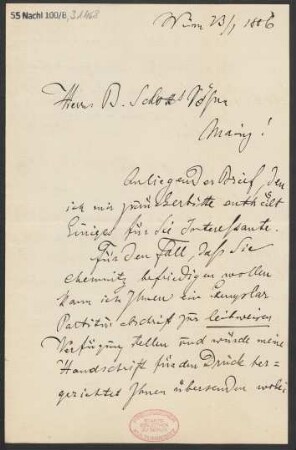 55 Nachl 100/B, 31468
Wien 23/1 1886
Herrn B. Schott Söhne
Mainz!
Anliegender Brief, den
ich mir zurückerbitte enthält
Einiges für Sie Interessante.
Für den Fall, dass Sie
Chemnitz befriedigen wollen
kann ich Ihnen ein Exemplar
Partitur Abschrift zur leihweisen
Verfügung stellen und würde meine
Handschrift für den Druck her-
gerichtet Ihnen übersenden